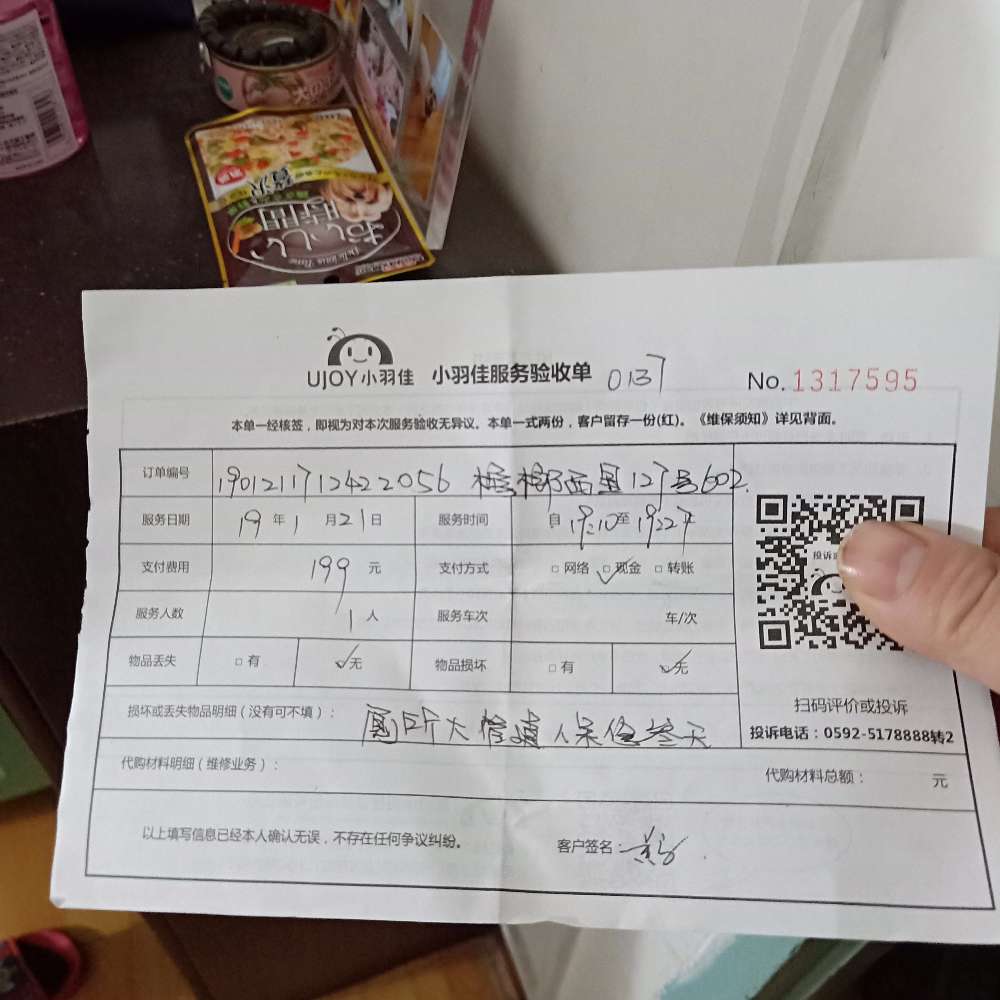 おいしい
時間
贅沢
Delicious Time
UJOY小羽佳 小羽佳服务验收单 0137 No. 1317595
本单一经核签，即视为对本次服务验收无异议。本单一式两份，客户留存一份(红)。《维保须知》详见背面。
订单编号 1901211712422056 西里127号602.
服务日期 19年1月21日 服务时间 自19:10至19:27
支付费用 199元 支付方式 □网络 □现金 □转账
服务人数 1人 服务车次 车/次
物品丢失 □有 □无 物品损坏 □有 □无
投诉
扫码评价或投诉
投诉电话：0592-5178888转2
损坏或丢失物品明细（没有可不填）： 厕所大管道 保修叁天
代购材料明细（维修业务）： 代购材料总额： 元
以上填写信息已经本人确认无误，不存在任何争议纠纷。 客户签名：